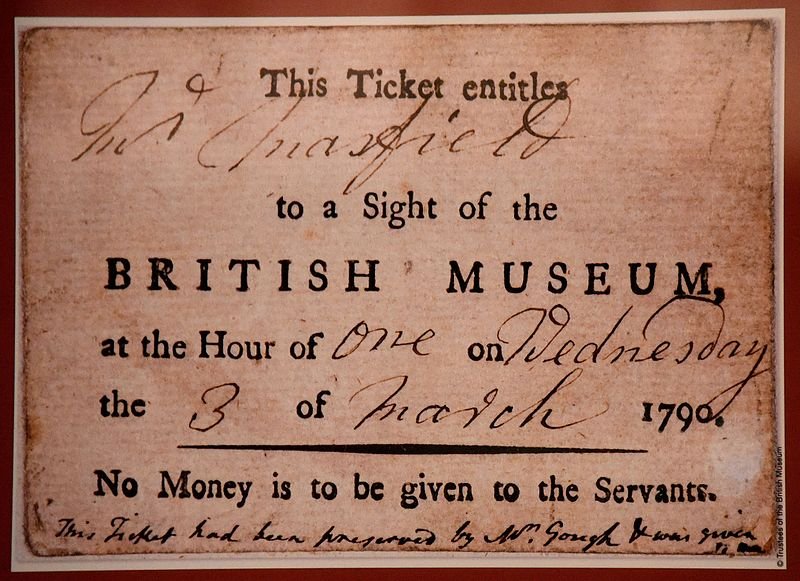 This Ticket entitles
to a Sight of the
BRITISH MUSEUM,
at the Hour of One on Wednesday
the 3 of March 1790.
No Money is to be given to the Servants.
This Ticket had been preserved by Mr. Gough & was given
© Trustees of the British Museum